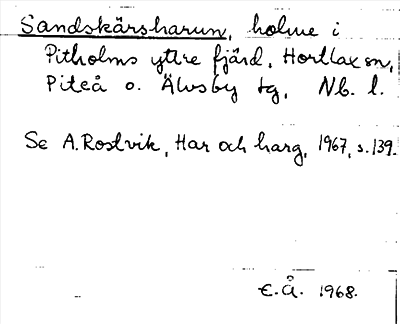 Sandskärsharun, holme i
Pitholms yttre fjärd, Hortlax sn,
Piteå o. Älvsby tg, Nb. l.
Se A. Rostvik, Har och harg, 1967, s. 139.
E. Å. 1968.